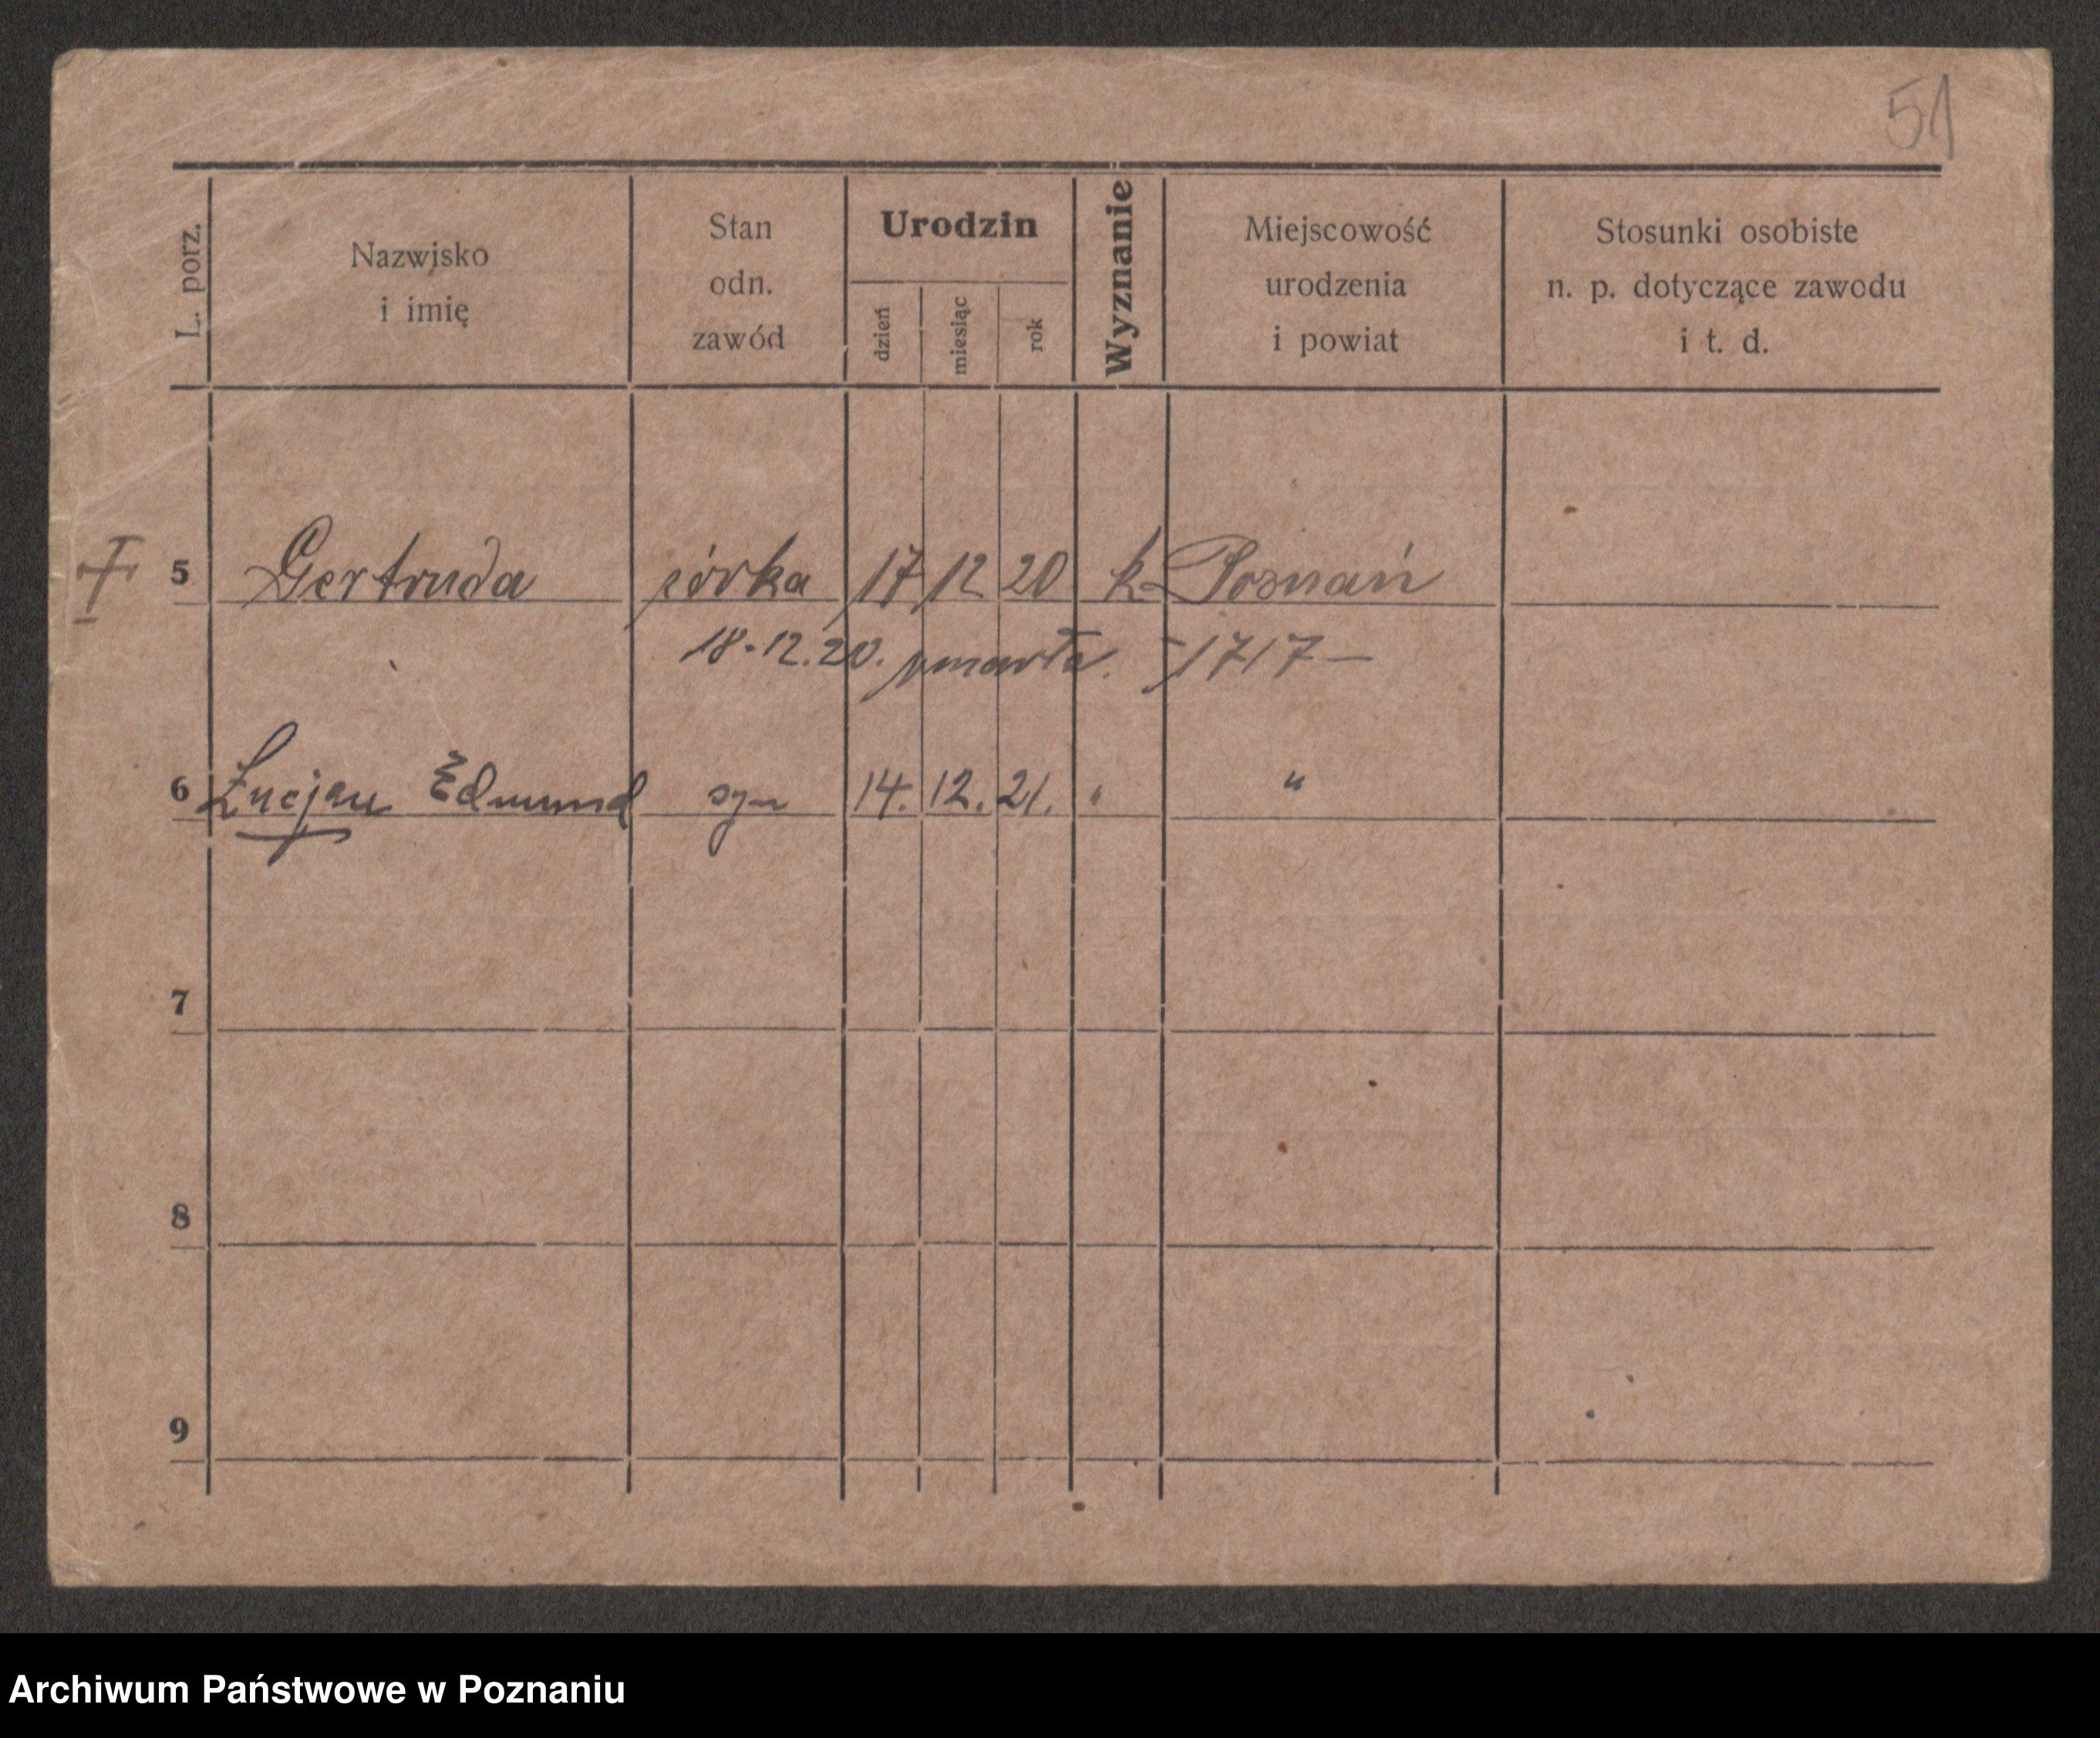 51
L. porz.
Nazwisko
i imię
Stan
odn.
zawód
Urodzin
dzień
miesiąc
rok
Wyznanie
Miejscowość
urodzenia
i powiat
Stosunki osobiste
n. p. dotyczące zawodu
i t. d.
5 Gertruda córka 17 12 20 k Poznań
18.12.20. zmarła. -1717-
6 Lucjan Edmund syn 14. 12. 21. " "
7
8
9
Archiwum Państwowe w Poznaniu